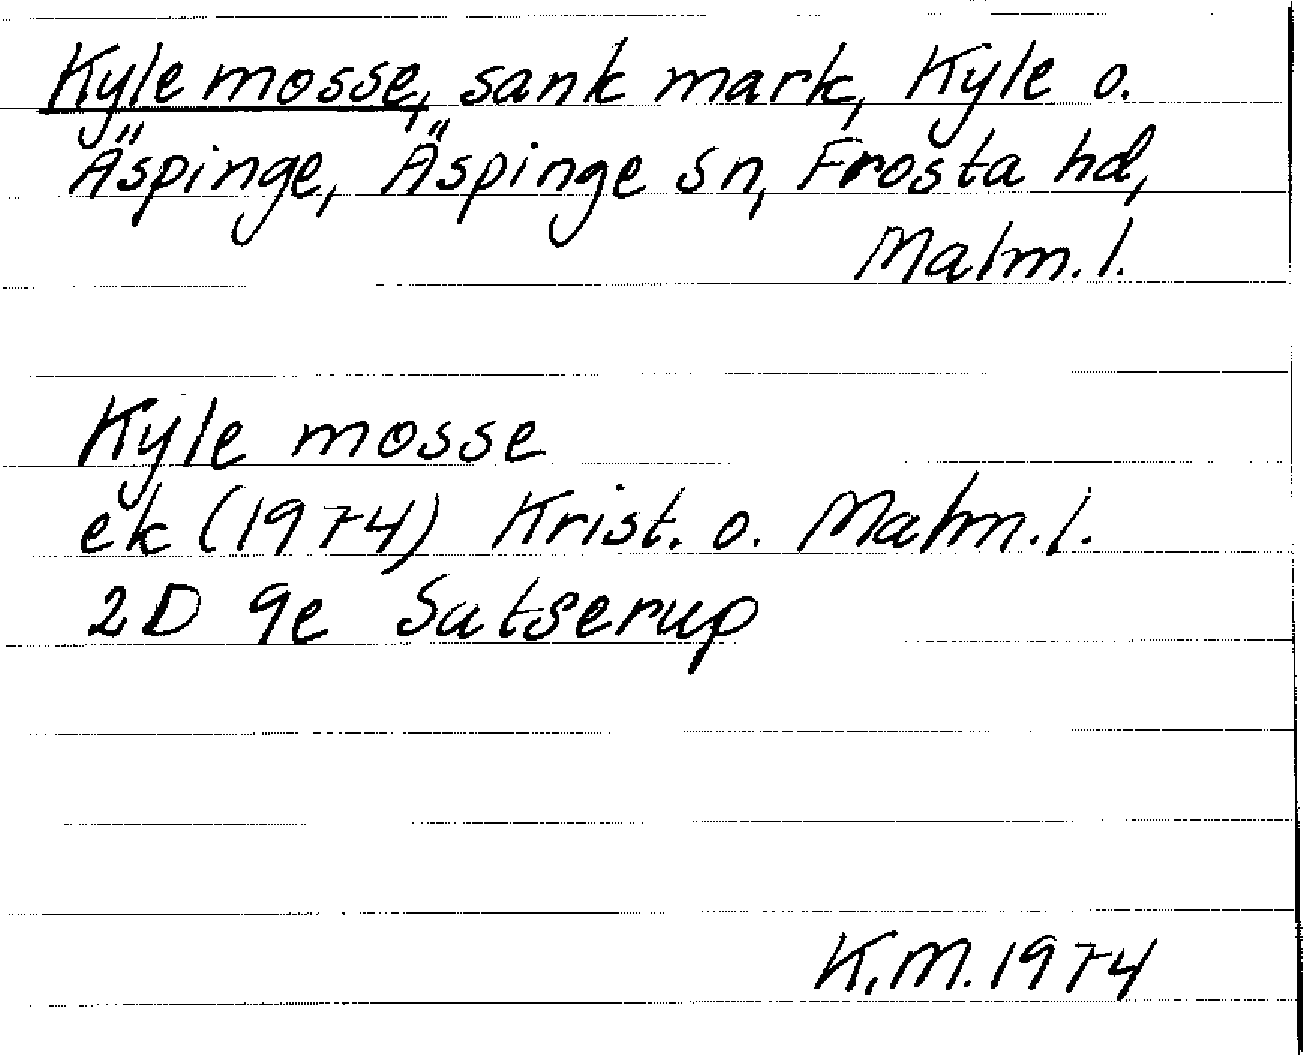 Kyle mosse, sank mark, Kyle o.
Äspinge, Äspinge sn, Frosta hd,
Malm.l.
Kyle mosse
ek (1974) Krist. o. Malm.l.
2D 9e Satserup
K.M. 1974